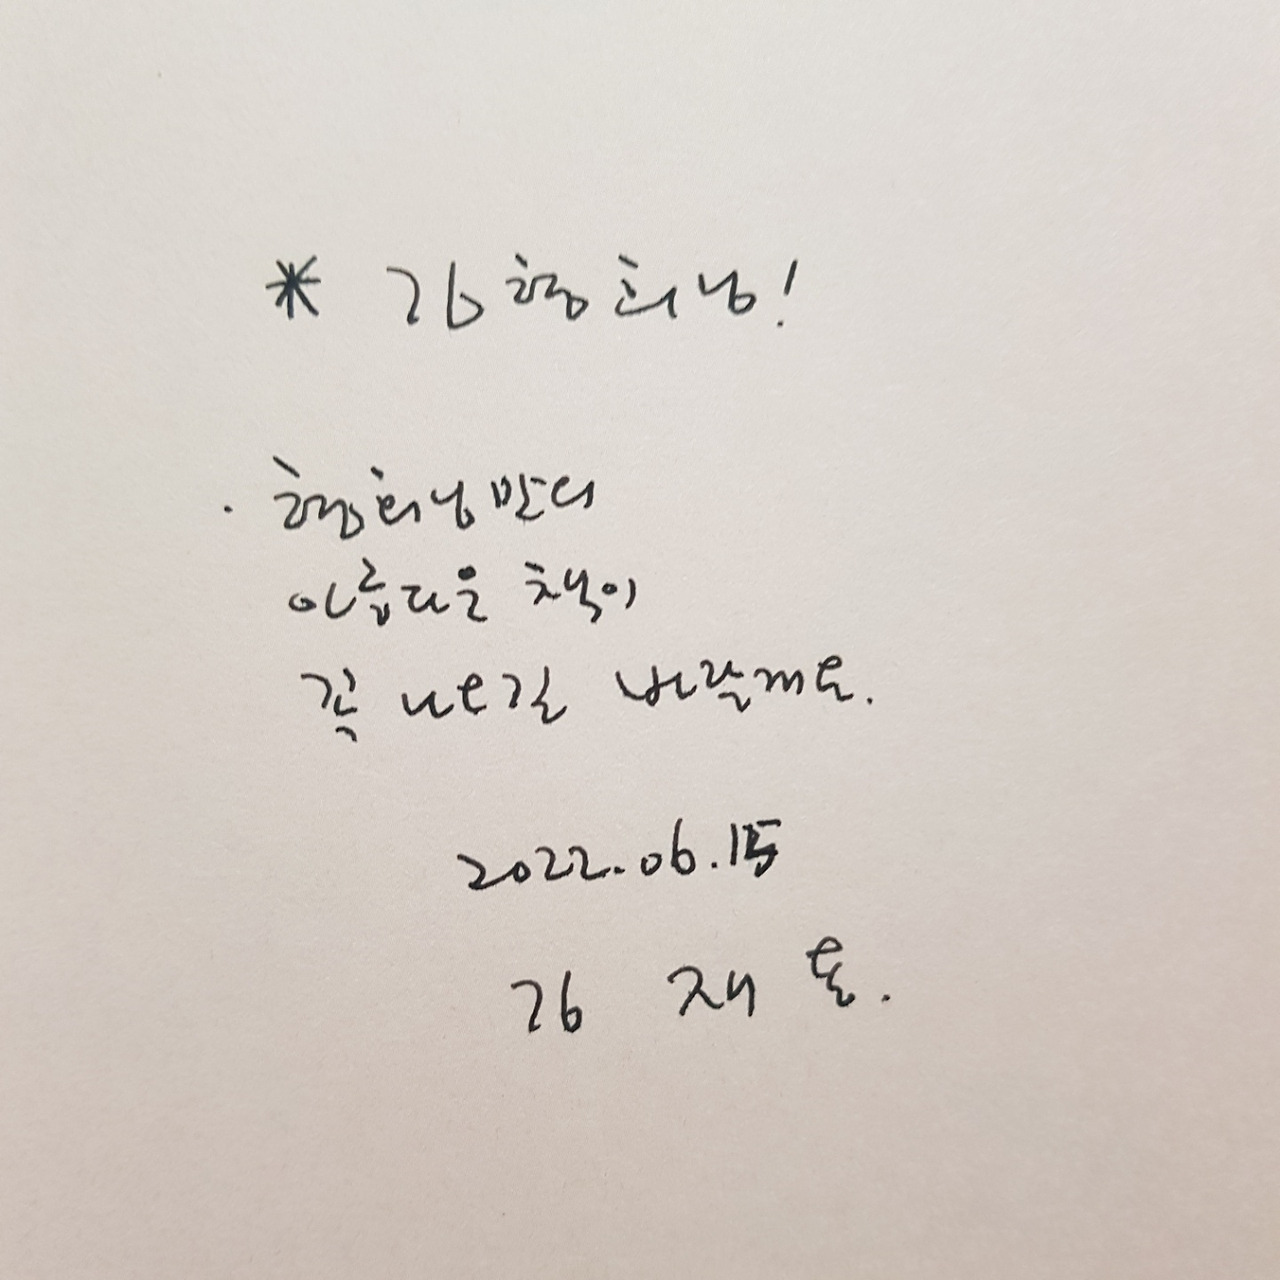 * 김형희님!
· 형희님만의
아름다운 책이
꼭 나오길 바랄께요.
2022.06.15
김 재